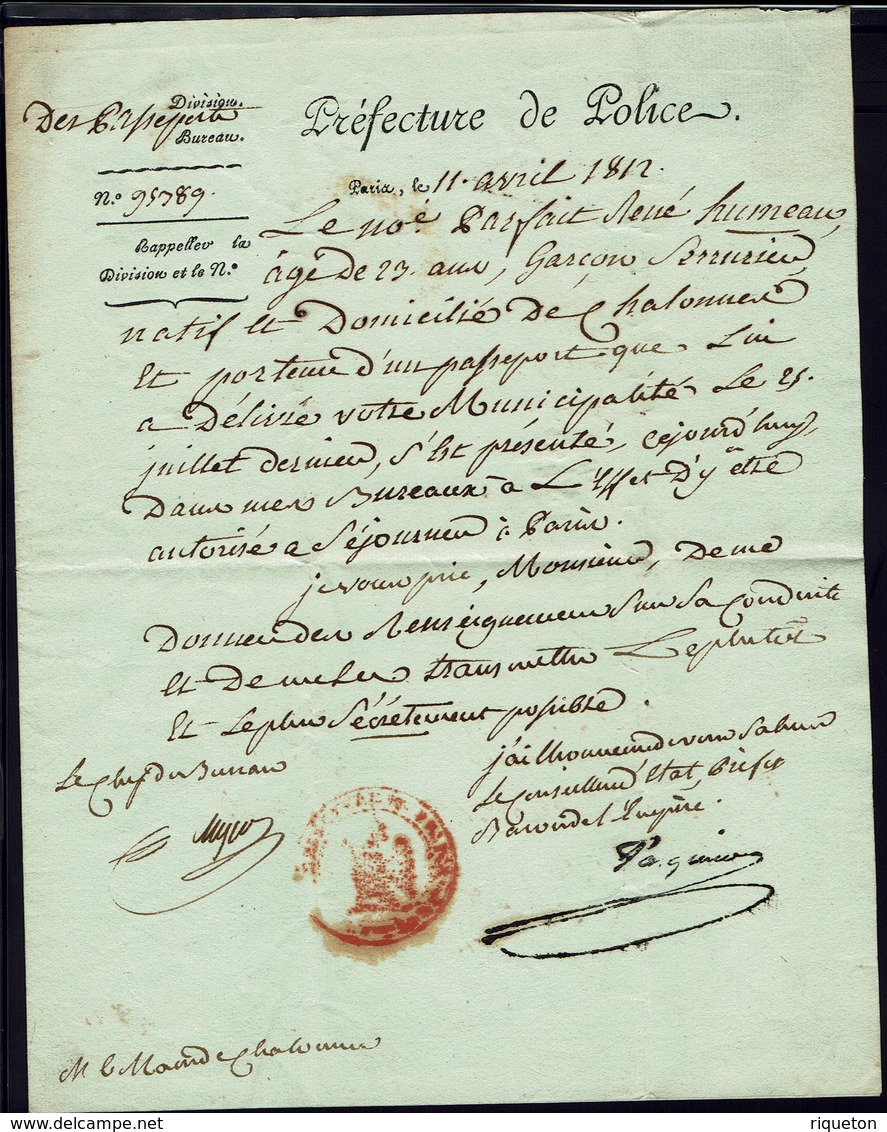 Division.
Des Passeports
Bureau.
Préfecture de Police.
N.º 95789.
Paris, le 11. avril 1812.
Rappeller la
Division et le N.º
Le no.é Parfait René humeau,
âgé De 23. ans, Garçon Serrurier,
natif et Domicilié De Chalonnes
Et porteur d'un passeport que Lui
a Délivré votre Municipalité Le 25.
juillet dernier, s'Est présenté, cejourd'huy,
Dans mes Bureaux à L'Effet D'y être
autorisé a Séjourner à Paris.
je vous prie, Monsieur, De me
Donner des Renseignemens Sur Sa Conduite
Et De me les transmettre Le plutôt
Et Le plus Secrètement possible.
j'ai l'honneur de vous Saluer
Le Conseiller d'Etat, Préfet
Baron de l'Empire.
Le Chef du Bureau
Pasquier
M le Maire de Chalonnes
riqueton